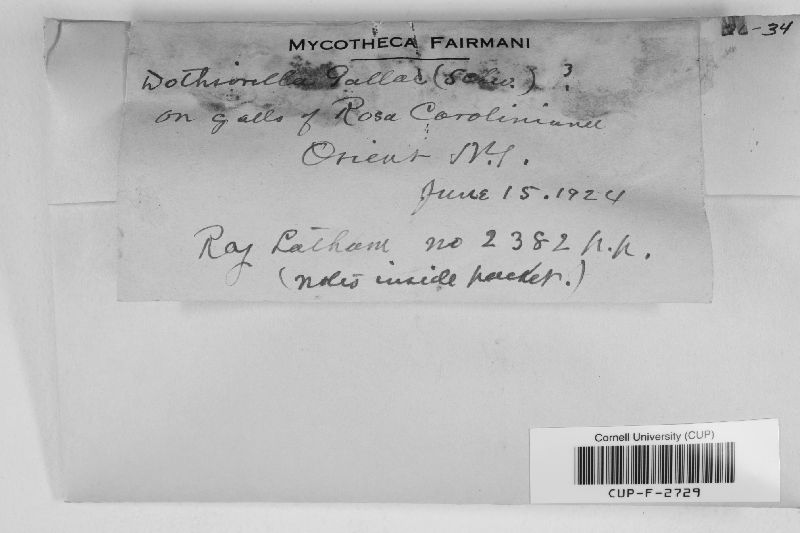 -34
MYCOTHECA FAIRMANI
Dothiorella Gallae (Schw.) ?
on galls of Rosa Caroliniana
Orient N.Y.
June 15. 1924
Roy Latham no 2382 p.p.
(notes inside packet.)
Cornell University (CUP)
CUP-F-2729